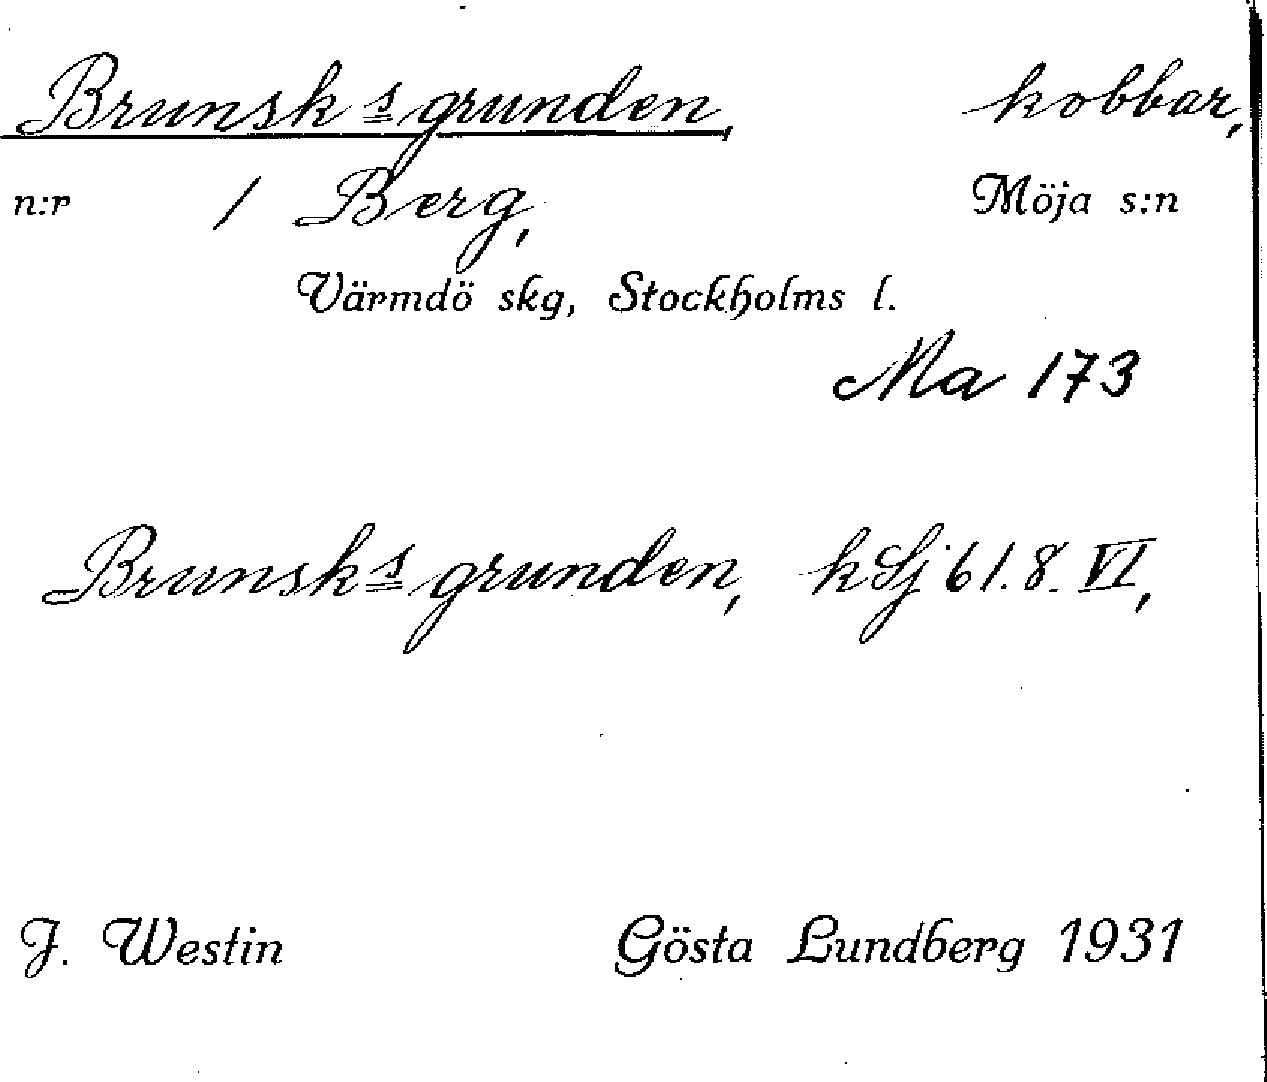 Brunsk s grunden, kobbar,
n:r 1 Berg, Möja s:n
Värmdö skg, Stockholms l.
Ma 173
Brunsk s grunden, k Sj 61.8. VI,
J. Westin Gösta Lundberg 1931